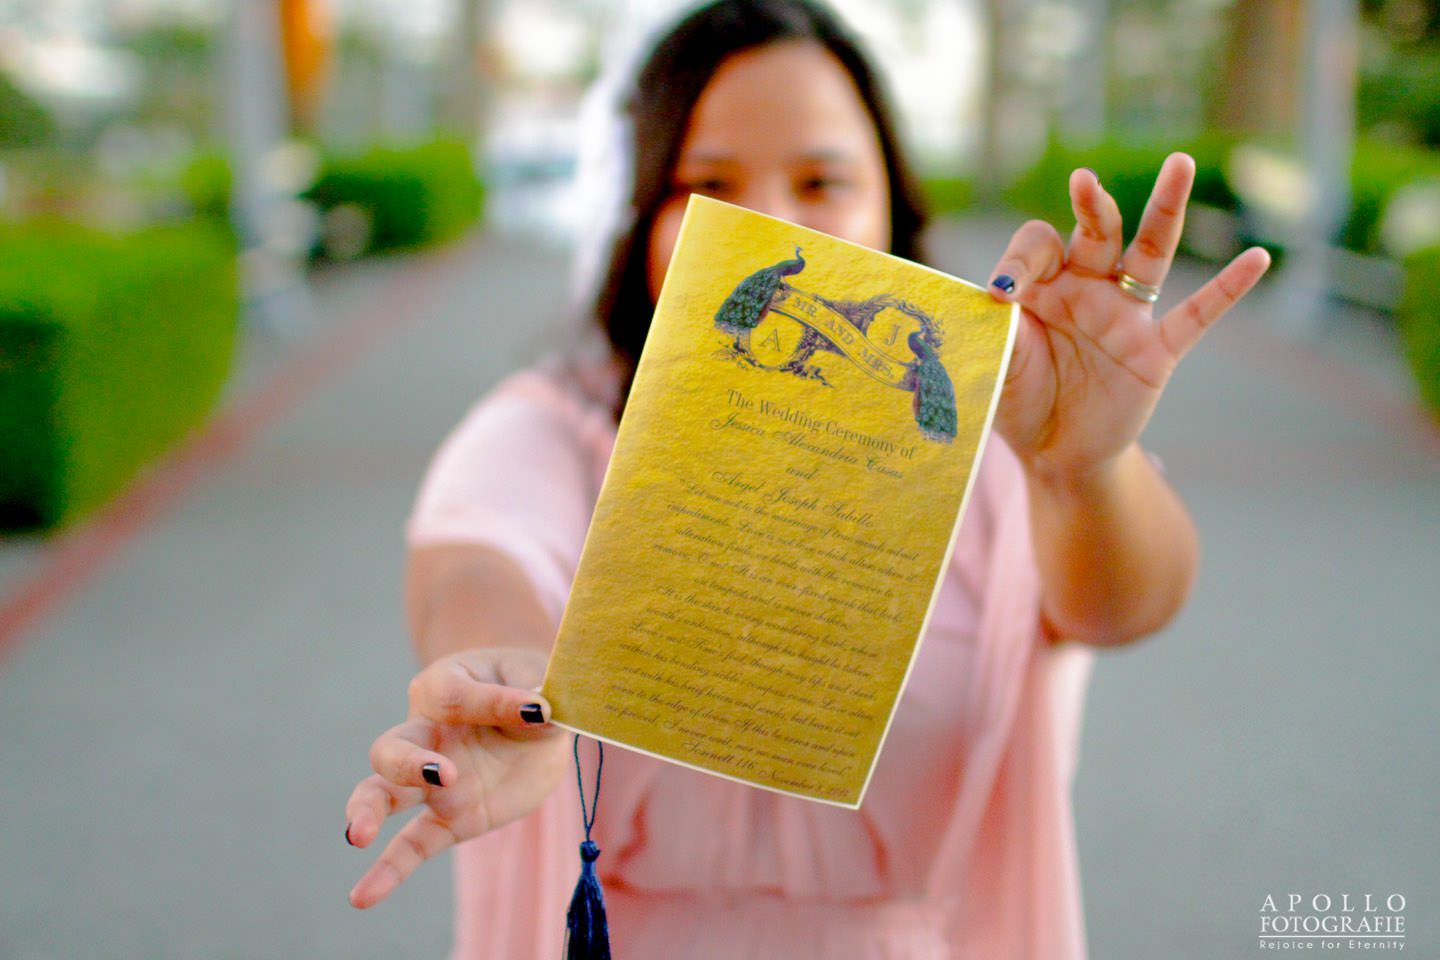 MR. AND MRS.
A
J
The Wedding Ceremony of
Jessica Alexandria Casas
and
Angel Joseph Sabillo
"Let me not to the marriage of true minds admit
impediments. Love is not love which alters when it
alteration finds, or bends with the remover to
remove. O no! It is an ever-fixed mark that looks
on tempests and is never shaken.
It is the star to every wandering bark, whose
worth's unknown, although his height be taken.
Love's not Time's fool, though rosy lips and cheeks
within his bending sickle's compass come: Love alters
not with his brief hours and weeks, but bears it out
even to the edge of doom. If this be error and upon
me proved, I never writ, nor no man ever loved."
Sonnett 116 November 3,
APOLLO
FOTOGRAFIE
Rejoice for Eternity